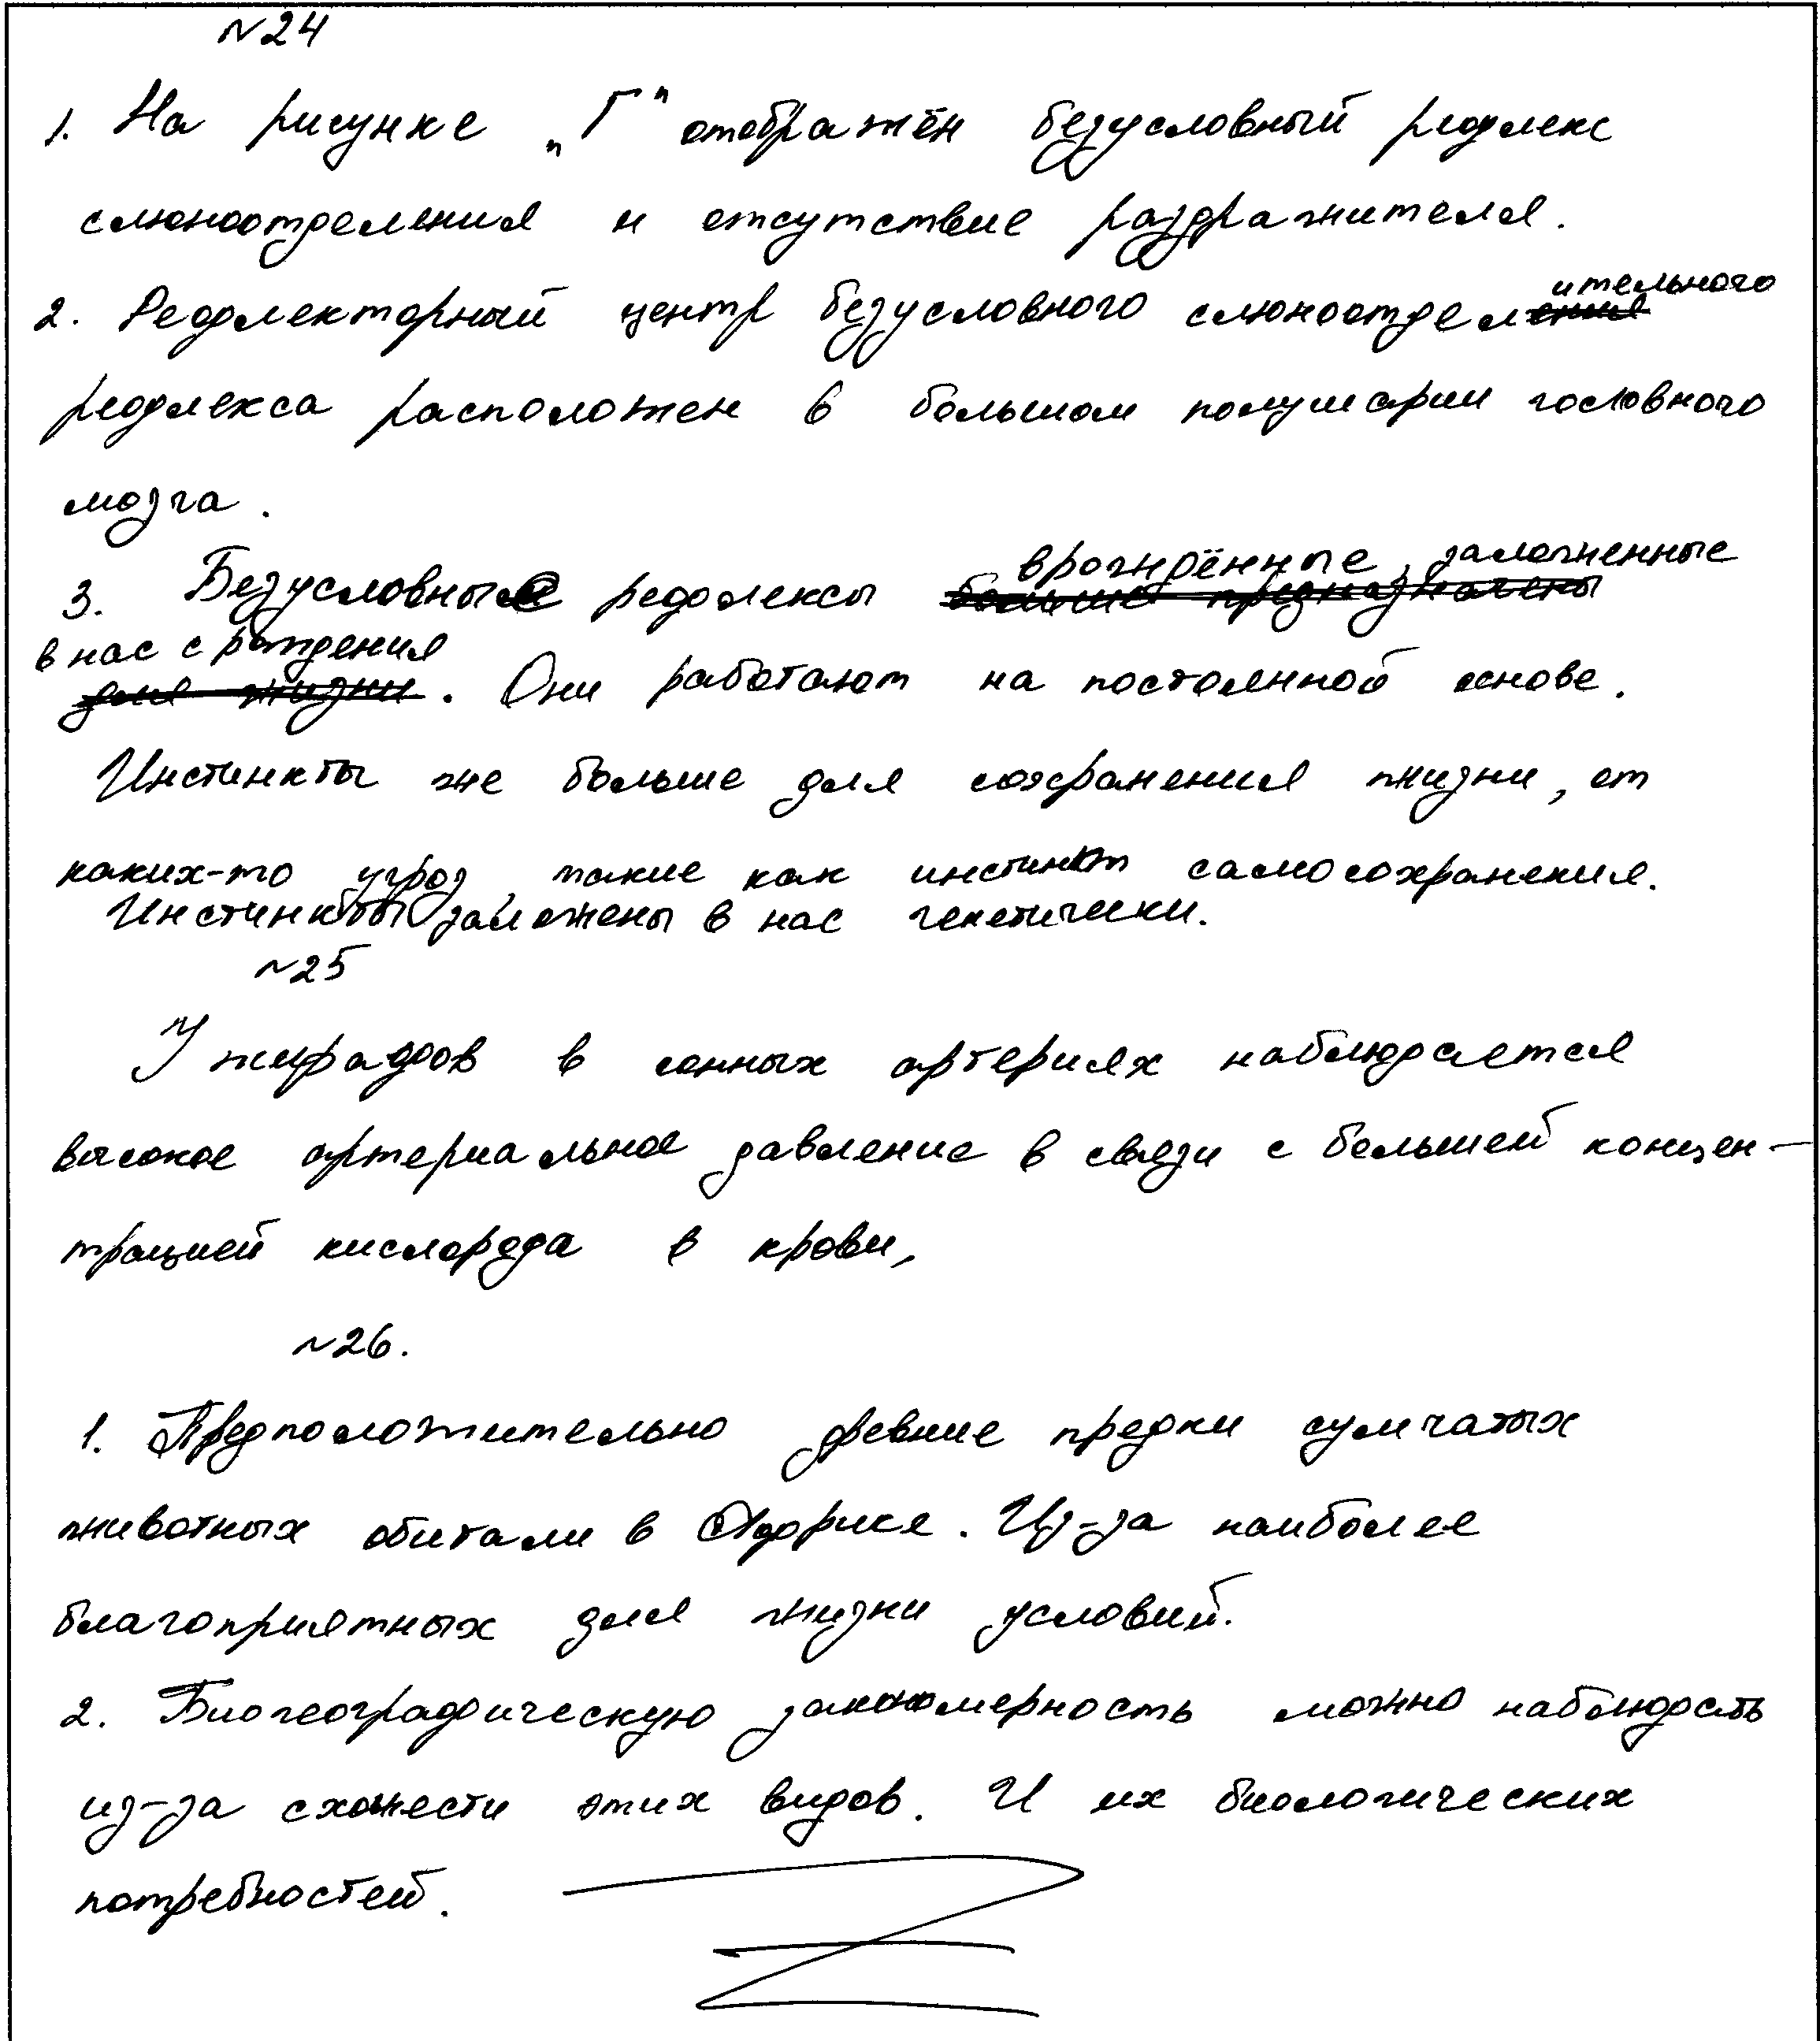 ~24
1. На рисунке „Г" отображён безусловный рефлекс
слюноотделения и отсутствие раздражителя.
2. Рефлекторный центр безусловного слюноотделительного
рефлекса расположен в большом полушарии головного
мозга.
3. Безусловные рефлексы врождённые, заложенные
в нас с рождения. Они работают на постоянной основе.
Инстинкты же больше для сохранения жизни, от
каких-то угроз, такие как инстинкт самосохранения.
Инстинкты заложены в нас генетически.
~25
У жирафов в сонных артериях наблюдается
высокое артериальное давление в связи с большей концен-
трацией кислорода в крови,
~26.
1. Предположительно древние предки сумчатых
животных обитали в Африке. Из-за наиболее
благоприятных для жизни условий.
2. Биогеографическую закономерность можно наблюдать
из-за схожести этих видов. И их биологических
потребностей.